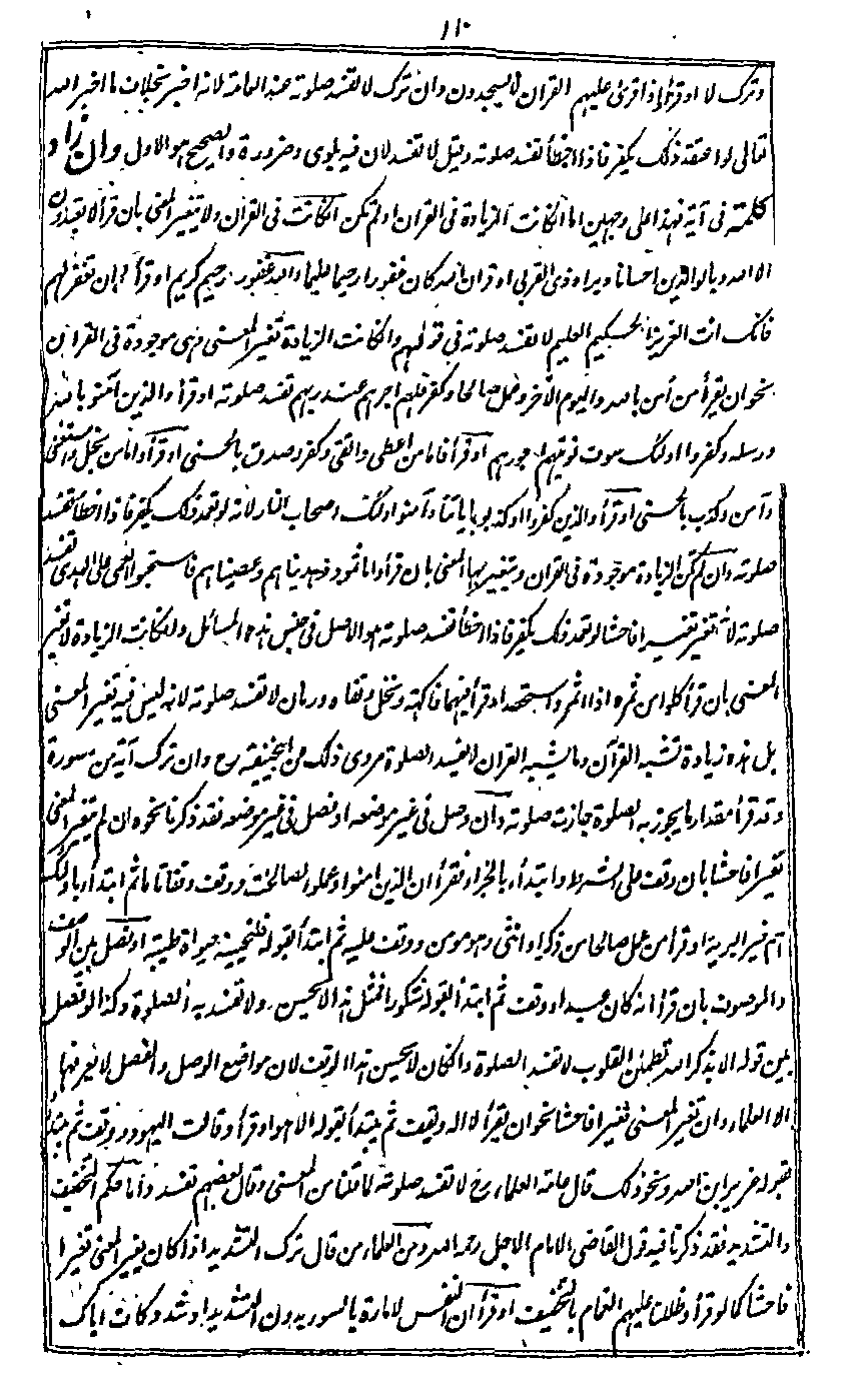 ١١٠
وترك لا او قرأ واذا قرئ عليهم القران لا يسجدون وان ترك لا تفسد صلوته عند العامة لانه اخبر بخلاف ما اخبر الله
تعالى لو اعتقد ذلك يكفر فاذا اخطأ تفسد صلوته وقيل لا تفسد لان فيه بلوى وضرورة والصحيح هو الاول وان زاد
كلمة فى آية فهذا على وجهين اما ان كانت الزيادة فى القران او لم تكن ان كانت فى القران ولا يتغير المعنى بان قرأ لا تعبدون
الا الله وبالوالدين احسانا وبرا وذى القربى او قرأ ان الله كان غفورا رحيما عليما والله غفور رحيم كريم او قرأ ان تغفر لهم
فانك انت العزيز الحكيم العليم لا تفسد صلوته فى قولهم وان كانت الزيادة تغير المعنى وهى موجودة فى القران
نحو ان يقرأ من أمن بالله واليوم الآخر وعمل صالحا وكفر فلهم اجرهم عند ربهم تفسد صلوته او قرأ والذين آمنوا بالله
ورسله وكفروا اولئك سوف نؤتيهم اجورهم او قرأ فاما من اعطى واتقى وكفر وصدق بالحسنى او قرأ واما من بخل واستغنى
وآمن وكذب بالحسنى او قرأ والذين كفروا وكذبوا بآياتنا وآمنوا اولئك اصحاب النار لانه لو تعمد ذلك يكفر فاذا اخطأ تفسد
صلوته وان لم تكن الزيادة موجودة فى القران وتغير بها المعنى بان قرأ واما ثمود فهديناهم وعصيناهم فاستحبوا العمى على الهدى تفسد
صلوته لانه تغير تغييرا فاحشا لو تعمد ذلك يكفر فاذا اخطأ تفسد صلوته هو الاصل فى جنس هذه المسائل وان كانت الزيادة لا تغير
المعنى بان قرأ كلوا من ثمره اذا اثمر واستحصد او قرأ فيهما فاكهة ونخل وتفاح ورمان لا تفسد صلوته لانه ليس فيه تغيير المعنى
بل هذه زيادة تشبه القرآن وما يشبه القران لا يفسد الصلوة مروى ذلك عن ابى حنيفة رح وان ترك آية من سورة
وقد قرأ مقدار ما يجوز به الصلوة جازت صلوته وان وصل فى غير موضعه او فصل فى غير موضعه فقد ذكرنا نحوه ان لم يتغير المعنى
تغيرا فاحشا بان وقف على الشرط وابتدأ بالجزاء فقرأ ان الذين امنوا وعملوا الصالحات ووقف وقفا تاما ثم ابتدأ باولئك
هم خير البرية او قرأ من عمل صالحا من ذكر او انثى وهو مومن ووقف عليه ثم ابتدأ بقوله فلنحيينه حيوة طيبة او فصل بين الوصف
والموصوف بان قرأ انه كان عبدا ووقف ثم ابتدأ بقوله شكورا فمثل هذا لا يحسن ولا تفسد به الصلوة وكذا لو فصل
بين قوله الا بذكر الله تطمئن القلوب لا تفسد الصلوة وان كان لا يحسن هذا الوقف لان مواضع الوصل والفصل لا يعرفها
الا العلماء وان تغير المعنى تغيرا فاحشا نحو ان يقرأ لا اله ويقف ثم يبتدأ بقوله الا هو او قرأ وقالت اليهود ووقف ثم يبتدأ
بقوله عزير ابن الله ونحو ذلك قال عامة العلماء رح لا تفسد صلوته لما قلنا من المعنى وقال بعضهم تفسد واما حكم التخفيف
والتشديد فقد ذكرنا فيه قول القاضى الامام الاجل رحمه الله ومن العلماء من قال ترك التشديد اذا كان يغير المعنى تغيرا
فاحشا كما لو قرأ وظللنا عليهم الغمام بالتخفيف او قرأ ان النفس لامارة بالسوء بدون التشديد او شدد وكانت اياك